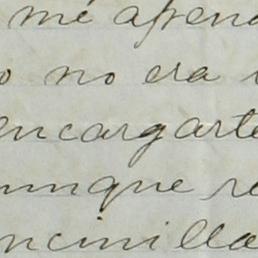 me apena
o no era
encargarte
unque re
ncinilla